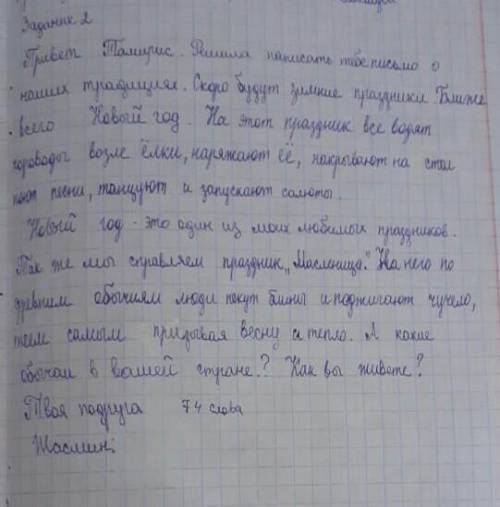 Задание 2
Привет Тамирис. Решила написать тебе письмо о
наших традициях. Скоро будут зимние праздники. Ближе
всего Новый год. На этот праздник все водят
хороводы возле ёлки, наряжают её, накрывают на стол
поют песни, танцуют и запускают салюты.
Новый год - это один из моих любимых праздников.
Так же мы справляем праздник „Масленица". На него по
древним обычиям люди пекут блины и поджигают чучело,
тем самым призывая весну и тепло. А какие
обычаи в вашей стране? Как вы живете?
Твоя подруга 74 слова
Жасмин;